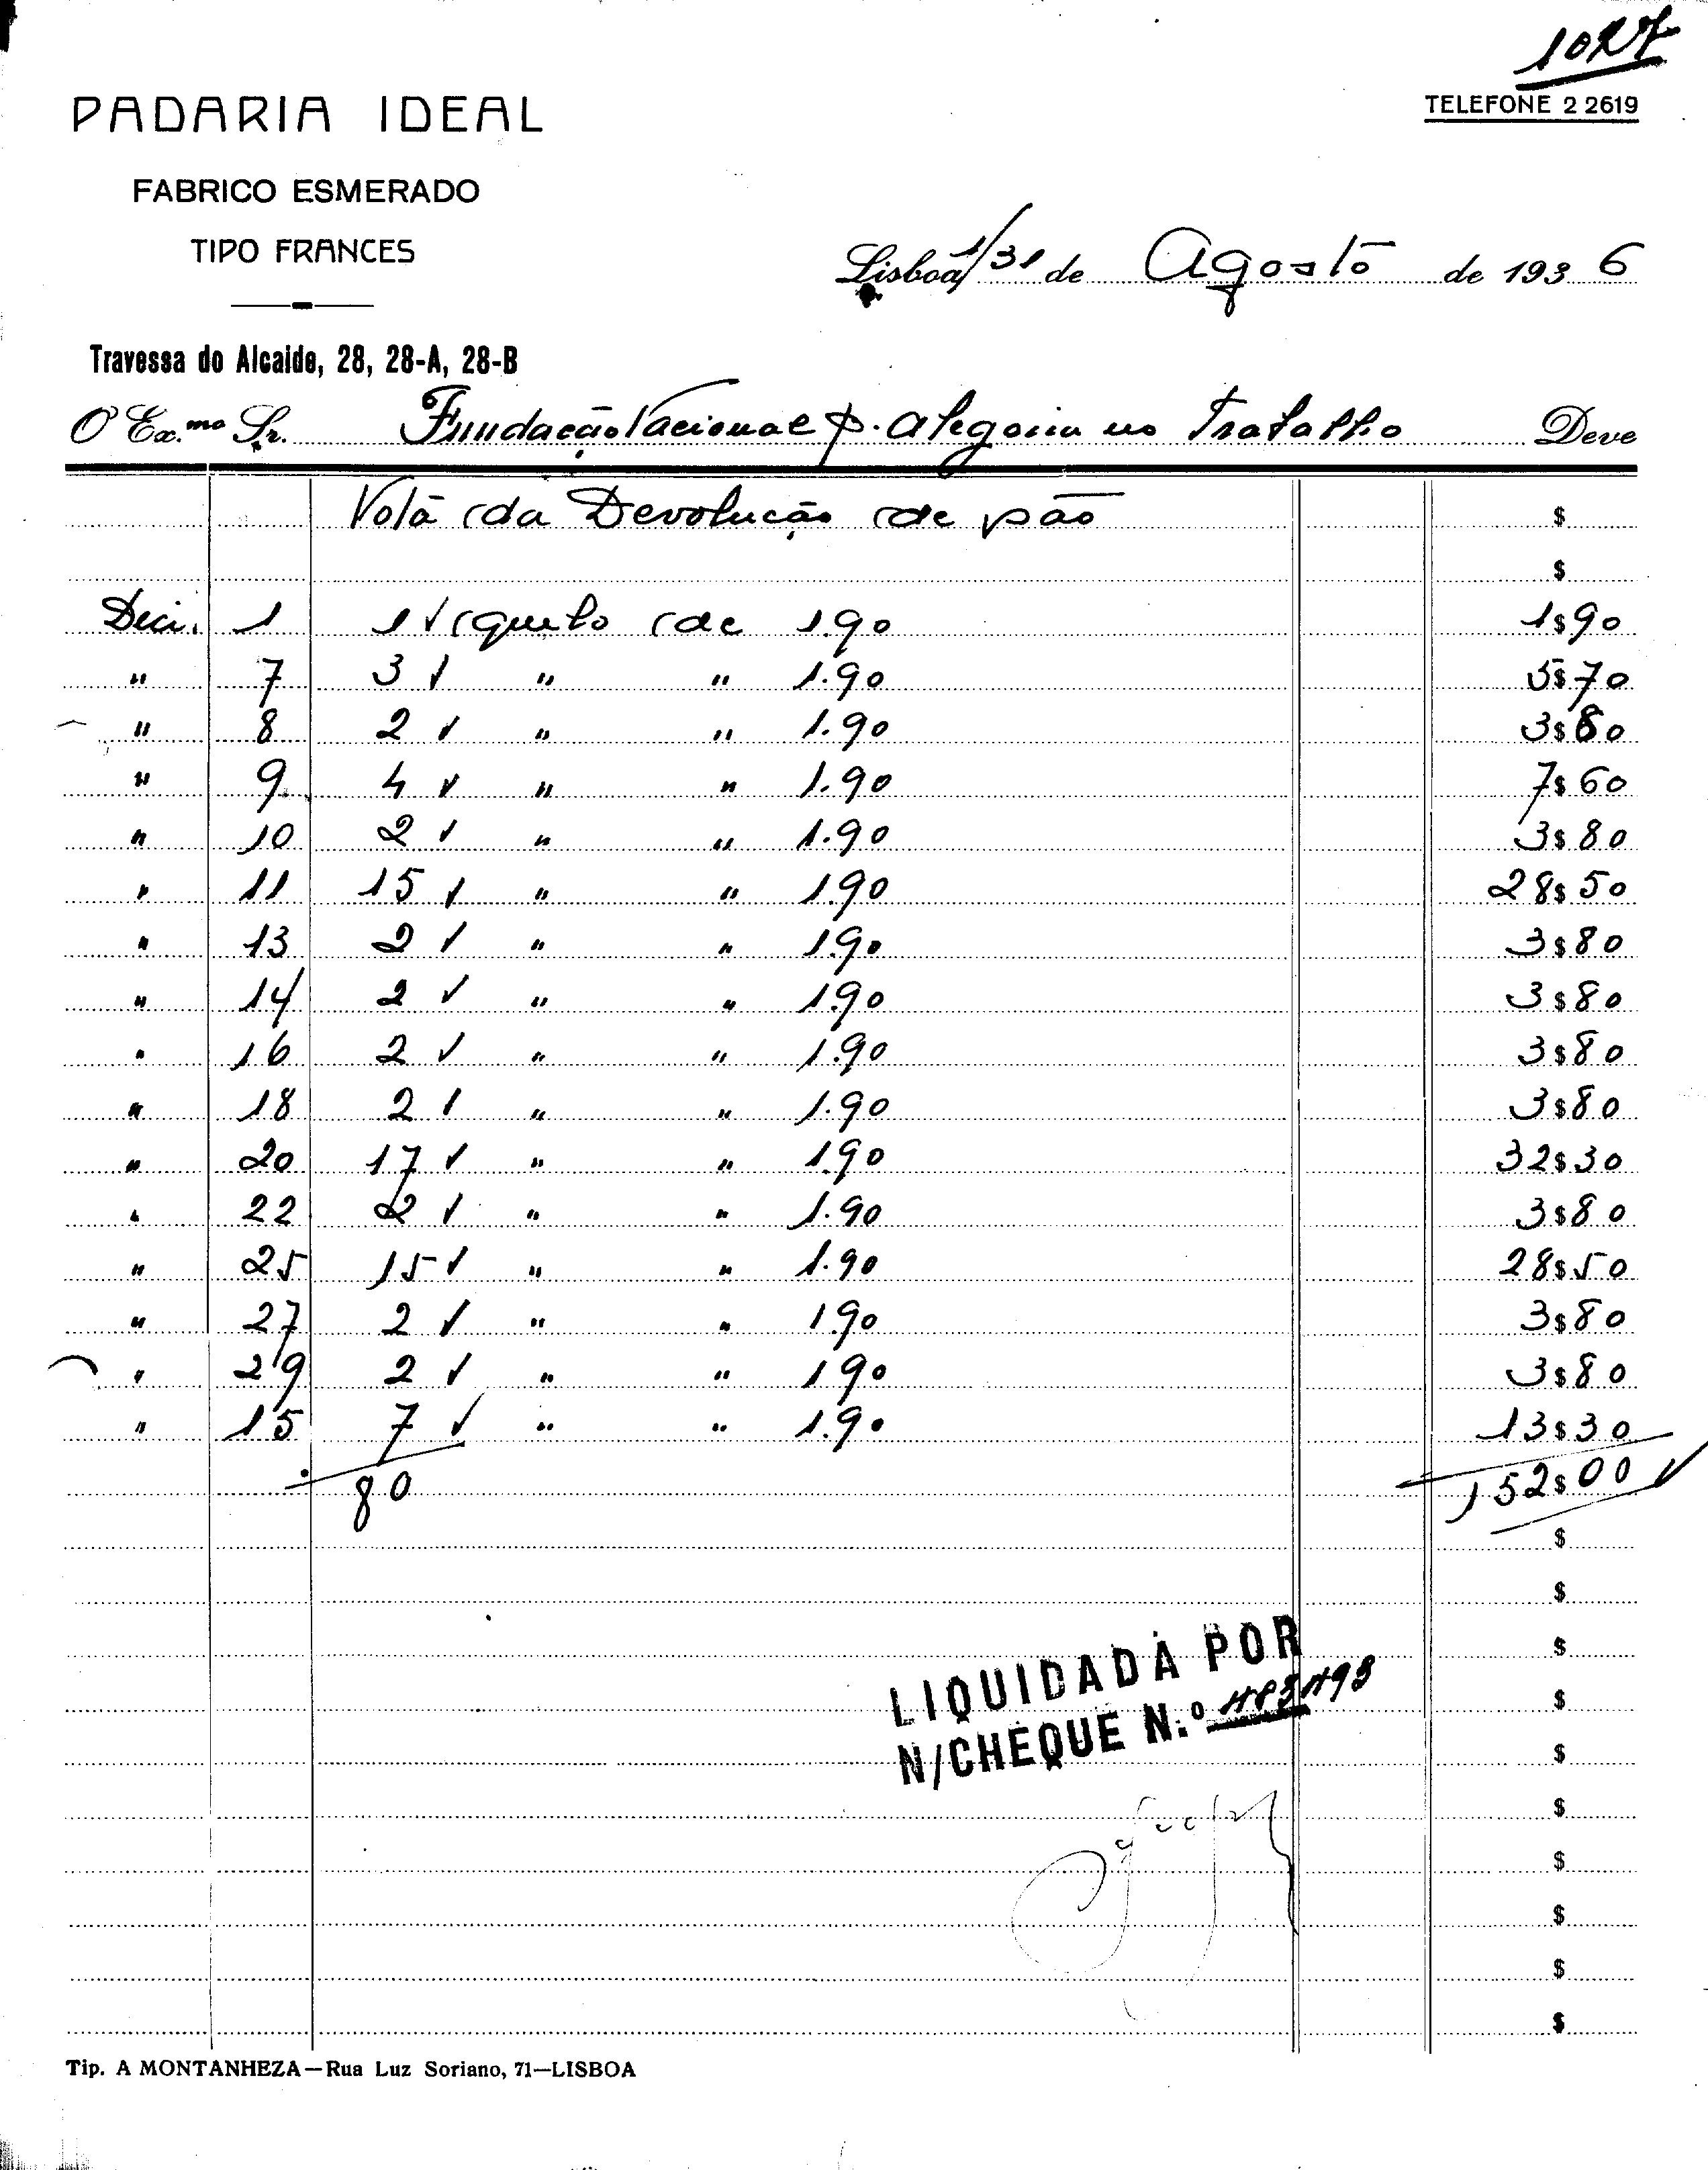 1027
PADARIA IDEAL
TELEFONE 2 2619
FABRICO ESMERADO
TIPO FRANCES
Lisboa, 1/31 de Agosto de 1936
Travessa do Alcaide, 28, 28-A, 28-B
O Ex.mo Sr. Fundação Nacional p. Alegria no Trabalho Deve
Nota da Devolução de pão
$
$
Dia. 1 1 √ quilo de 1.90 1$90
" 7 3 √ " " 1.90 5$70
" 8 2 √ " " 1.90 3$80
" 9 4 √ " " 1.90 7$60
" 10 2 √ " " 1.90 3$80
" 11 15 √ " " 1.90 28$50
" 13 2 √ " " 1.90 3$80
" 14 2 √ " " 1.90 3$80
" 16 2 √ " " 1.90 3$80
" 18 2 √ " " 1.90 3$80
" 20 17 √ " " 1.90 32$30
" 22 2 √ " " 1.90 3$80
" 25 15 √ " " 1.90 28$50
" 27 2 √ " " 1.90 3$80
" 29 2 √ " " 1.90 3$80
" 15 7 √ " " 1.90 13$30
80 152$00 √
$
$
$
$
$
$
$
$
$
$
LIQUIDADA POR
N/CHEQUE N.º
Tip. A MONTANHEZA—Rua Luz Soriano, 71—LISBOA